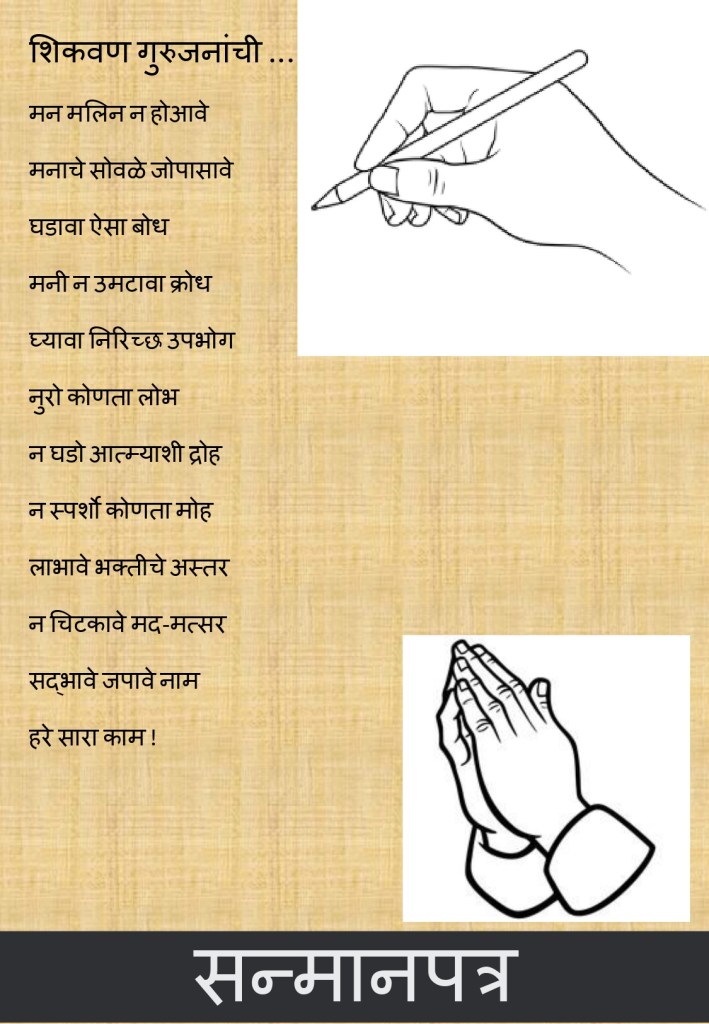 शिकवण गुरुजनांची ...
मन मलिन न होआवे
मनाचे सोवळे जोपासावे
घडावा ऐसा बोध
मनी न उमटावा क्रोध
घ्यावा निरिच्छ उपभोग
नुरो कोणता लोभ
न घडो आत्म्याशी द्रोह
न स्पर्शो कोणता मोह
लाभावे भक्तीचे अस्तर
न चिटकावे मद-मत्सर
सद्‌भावे जपावे नाम
हरे सारा काम !
सन्मानपत्र